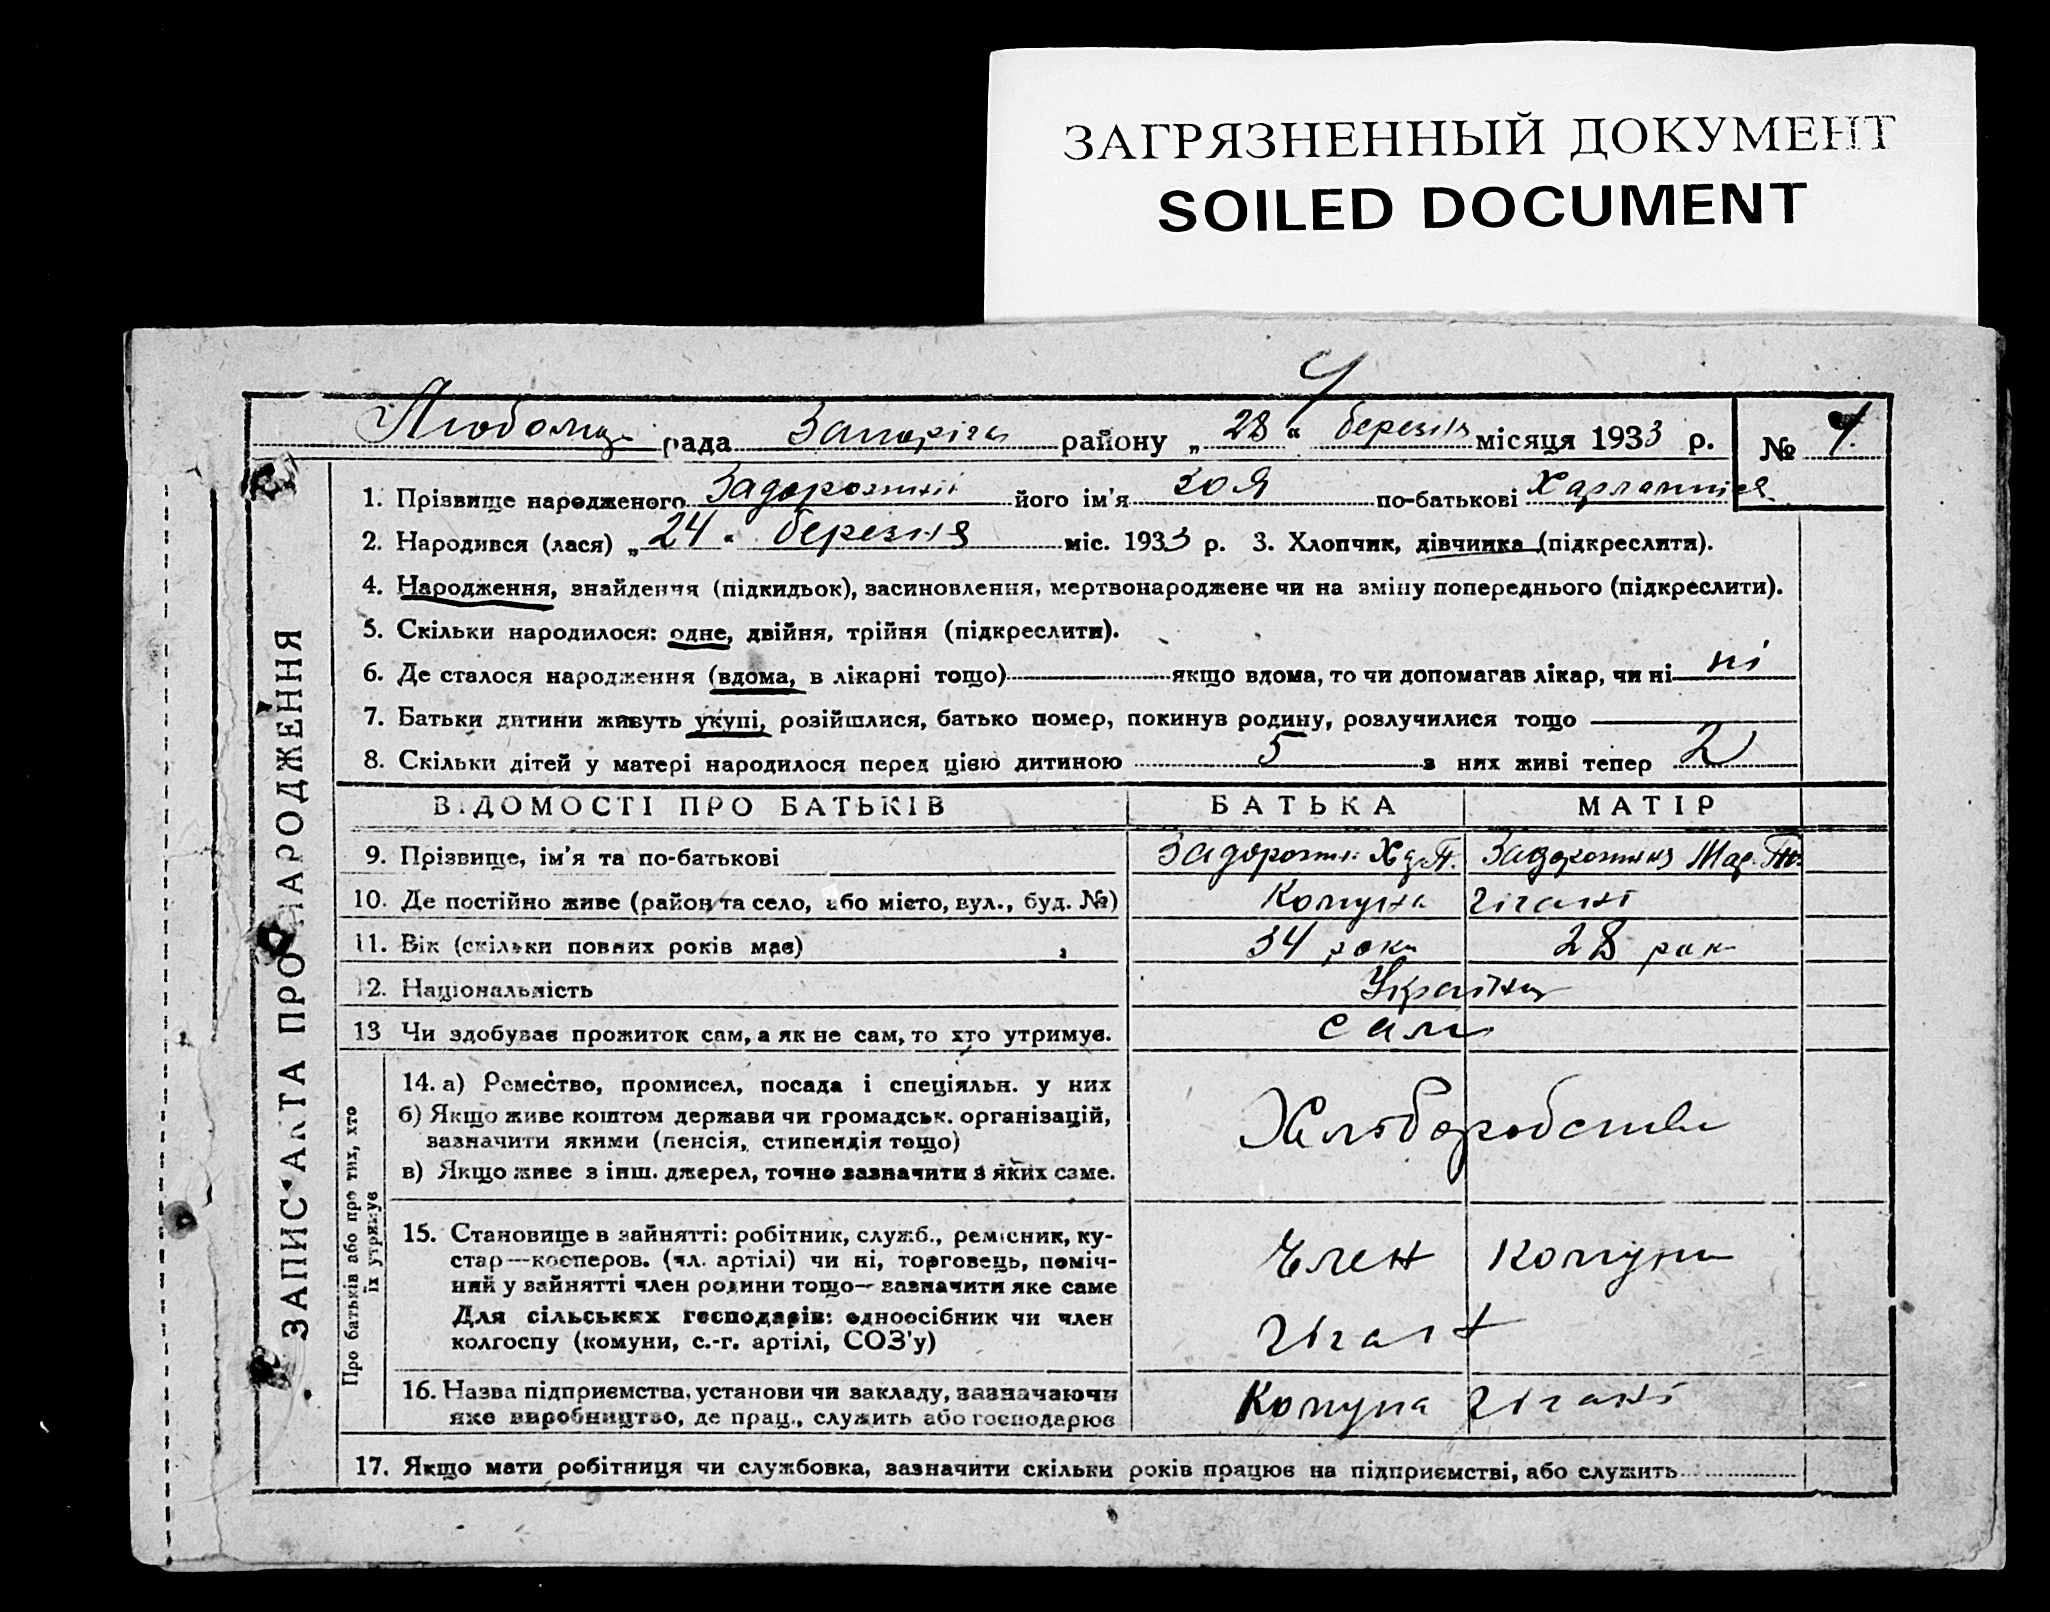 ЗАГРЯЗНЕННЫЙ ДОКУМЕНТ
SOILED DOCUMENT
рада району „28“ березня місяця 1933 р. №
1. Прізвище народженого його ім'я Зоя по-батькові
2. Народився (лася) „24“ березня міс. 1933 р. 3. Хлопчик, дівчинка (підкреслити).
4. Народження, знайдення (підкидьок), засиновлення, мертвонароджене чи на зміну попереднього (підкреслити).
5. Скільки народилося: одне, двійня, трійня (підкреслити).
6. Де сталося народження (вдома, в лікарні тощо) якщо вдома, то чи допомагав лікар, чи ні ні
7. Батьки дитини живуть укупі, розійшлися, батько помер, покинув родину, розлучилися тощо
8. Скільки дітей у матері народилося перед цією дитиною 5 з них живі тепер 2
ВІДОМОСТІ ПРО БАТЬКІВ БАТЬКА МАТІР
9. Прізвище, ім'я та по-батькові
10. Де постійно живе (район та село, або місто, вул., буд. №) Комуна гігант
11. Вік (скільки повних років має) 34 роки 28 рок
12. Національність
13 Чи здобував прожиток сам, а як не сам, то хто утримує. сам
Про батьків або про тих, хто їх утримує
14. а) Ремество, промисел, посада і спеціяльн. у них
б) Якщо живе коштом держави чи громадськ. організацій,
зазначити якими (пенсія, стипендія тощо)
в) Якщо живе з інш. джерел, точно зазначити з яких саме.
Хліборобство
15. Становище в зайнятті: робітник, служб., ремісник, ку-
стар—косперов. (чл. артілі) чи ні, торговець, поміч-
ний у зайнятті член родини тощо— зазначити яке саме
Для сільських господарів: одноосібник чи член
колгоспу (комуни, с.-г. артілі, СОЗ'у)
Член комуни
гігант
16. Назва підприємства, установи чи закладу, зазначаючи
яке виробництво, де прац., служить або господарює
Комуна гігант
17. Якщо мати робітниця чи службовка, зазначити скільки років працює на підприємстві, або служить
ЗАПИС АКТА ПРО НАРОДЖЕННЯ